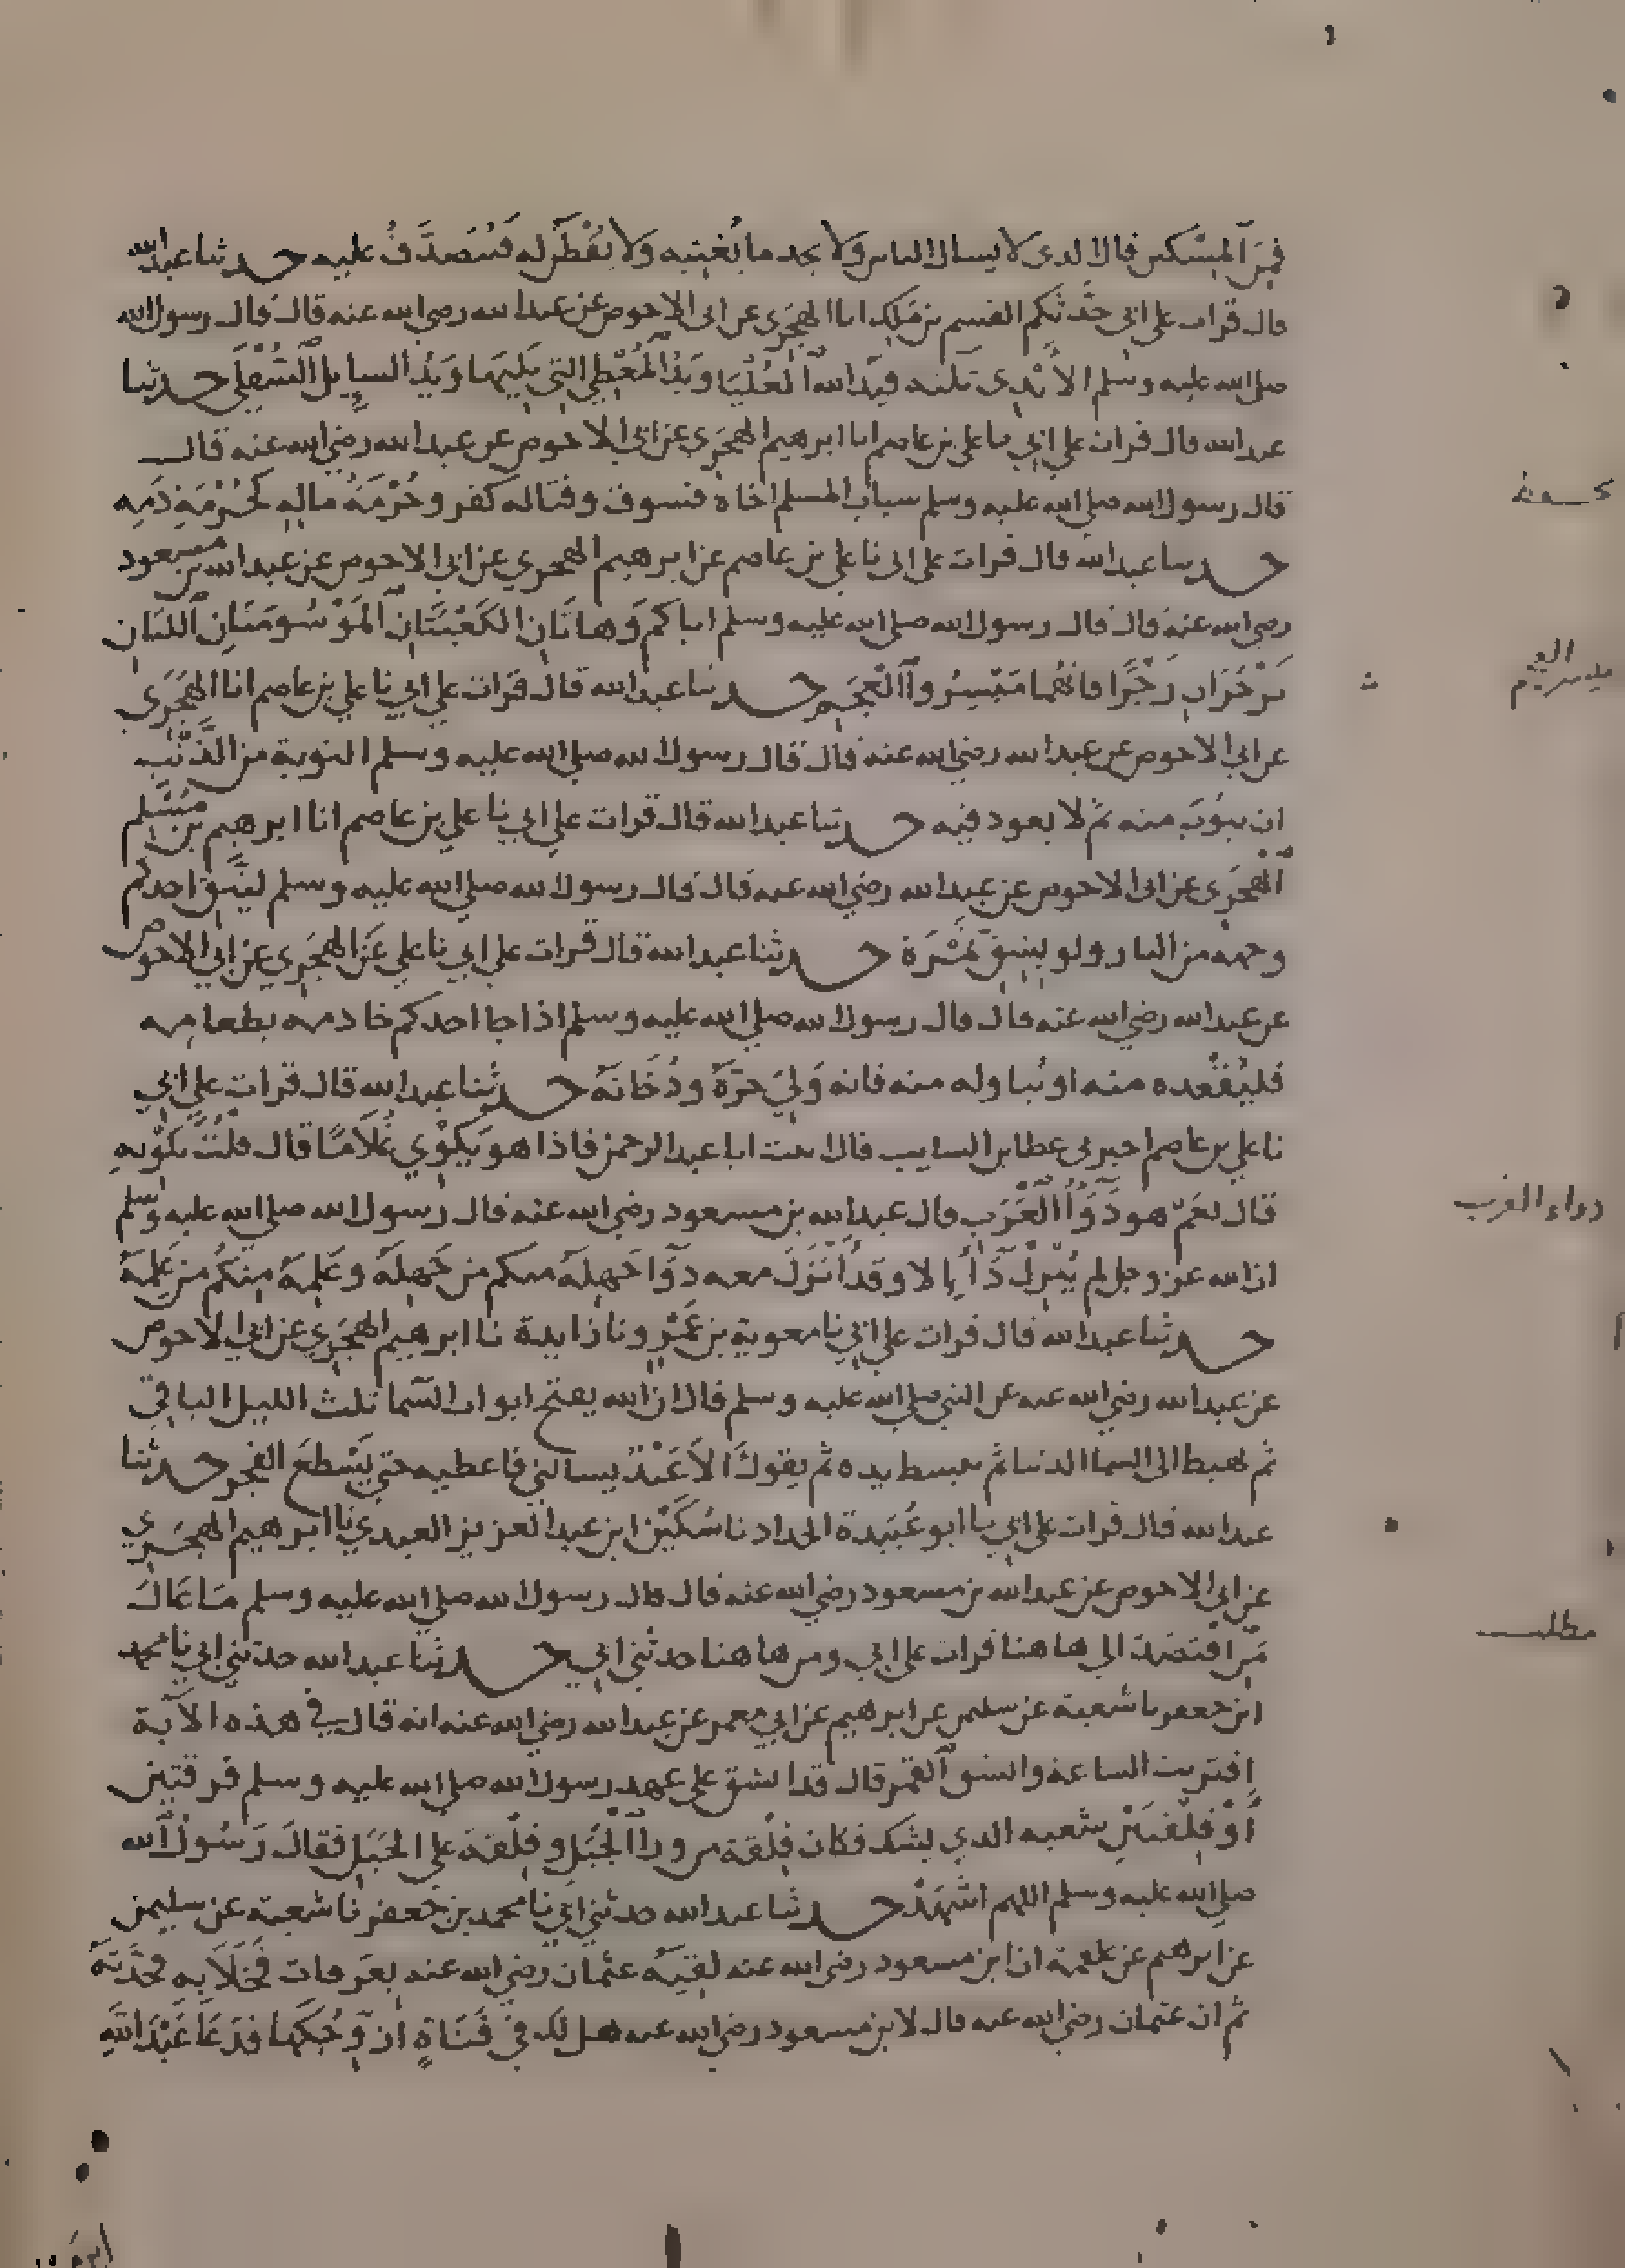 فمن المسكين قال الذى لا يسال الناس ولا يجد ما يغنيه ولا يفطن له فيتصدق عليه حدثنا عبد الله
قال قرات على ابي حدثكم القسم بن مالك انا الهجري عن ابي الاحوص عن عبد الله رضي الله عنه قال قال رسول الله
صلى الله عليه وسلم الايدى ثلثه فيد الله العليا ويد المعطي التي يليها ويد السايل السفلى حدثنا
عبد الله قال قرات على ابي نا علي بن عاصم انا ابرهيم الهجري عن ابي الاحوص عن عبد الله رضي الله عنه قال
قال رسول الله صلى الله عليه وسلم سباب المسلم اخاه فسوق وقتاله كفر وحرمة ماله كحرمة دمه
حدثنا عبد الله قال قرات على ابي نا علي بن عاصم عن ابرهيم الهجري عن ابي الاحوص عن عبد الله بن مسعود
رضي الله عنه قال قال رسول الله صلى الله عليه وسلم اياكم وهاتان الكعبتان الموسومتان اللتان
تزجران زجرا فانهما ميسر العجم حدثنا عبد الله قال قرات على ابي نا علي بن عاصم انا الهجري
عن ابي الاحوص عن عبد الله رضي الله عنه قال قال رسول الله صلى الله عليه وسلم التوبة من الذنب
ان يتوب منه ثم لا يعود فيه حدثنا عبد الله قال قرات على ابي نا علي بن عاصم انا ابرهيم بن مسلم
الهجري عن ابي الاحوص عن عبد الله رضي الله عنه قال قال رسول الله صلى الله عليه وسلم ليتق احدكم
وجهه من النار ولو بشق تمرة حدثنا عبد الله قال قرات على ابي نا علي عن الهجري عن ابي الاحوص
عن عبد الله رضي الله عنه قال قال رسول الله صلى الله عليه وسلم اذا جا احدكم خادمه بطعامه
فليقعده منه او يناوله منه فانه ولي حره ودخانه حدثنا عبد الله قال قرات على ابي
نا علي بن عاصم اخبرني عطا بن السايب قال اتيت ابا عبد الرحمن فاذا هو يكوي غلاما قال قلت تكويه
قال نعم هو دوا العرب قال عبد الله بن مسعود رضي الله عنه قال رسول الله صلى الله عليه وسلم
ان الله عز وجل لم ينزل دا الا وقد انزل معه دوا جهله منكم من جهله وعلمه منكم من علمه
حدثنا عبد الله قال قرات على ابي نا معوية بن عمرو نا زايدة نا ابرهيم الهجري عن ابي الاحوص
عن عبد الله رضي الله عنه عن النبي صلى الله عليه وسلم قال ان الله يفتح ابواب السما ثلث الليل الباقي
ثم يهبط الى السما الدنيا ثم يبسط يده ثم يقول الا عبد يسالني فاعطيه حتى يسطع الفجر حدثنا
عبد الله قال قرات على ابي نا ابو عبيدة الحداد نا سكين ابن عبد العزيز العبدي نا ابرهيم الهجري
عن ابي الاحوص عن عبد الله بن مسعود رضي الله عنه قال قال رسول الله صلى الله عليه وسلم ما عال
من اقتصد الى هاهنا قرات على ابي ومن هاهنا حدثني ابي حدثنا عبد الله حدثني ابي نا محمد
ابن جعفر نا شعبة عن سليمن عن ابرهيم عن ابي معمر عن عبد الله رضي الله عنه انه قال في هذه الآية
اقتربت الساعة وانشق القمر قال قد انشق على عهد رسول الله صلى الله عليه وسلم فرقتين
او فلقتين شعبة الذي يشك فكان فلقة من ورا الجبل وفلقة على الجبل فقال رسول الله
صلى الله عليه وسلم اللهم اشهد حدثنا عبد الله حدثني ابي نا محمد بن جعفر نا شعبة عن سليمن
عن ابرهيم عن علقمة ان ابن مسعود رضي الله عنه لقيه عثمان رضي الله عنه بعرفات فخلا به فحدثه
ثم ان عثمان رضي الله عنه قال لابن مسعود رضي الله عنه هل لك في فتاة ازوجكها فدعا عبد الله
دواء العرب
مطلب